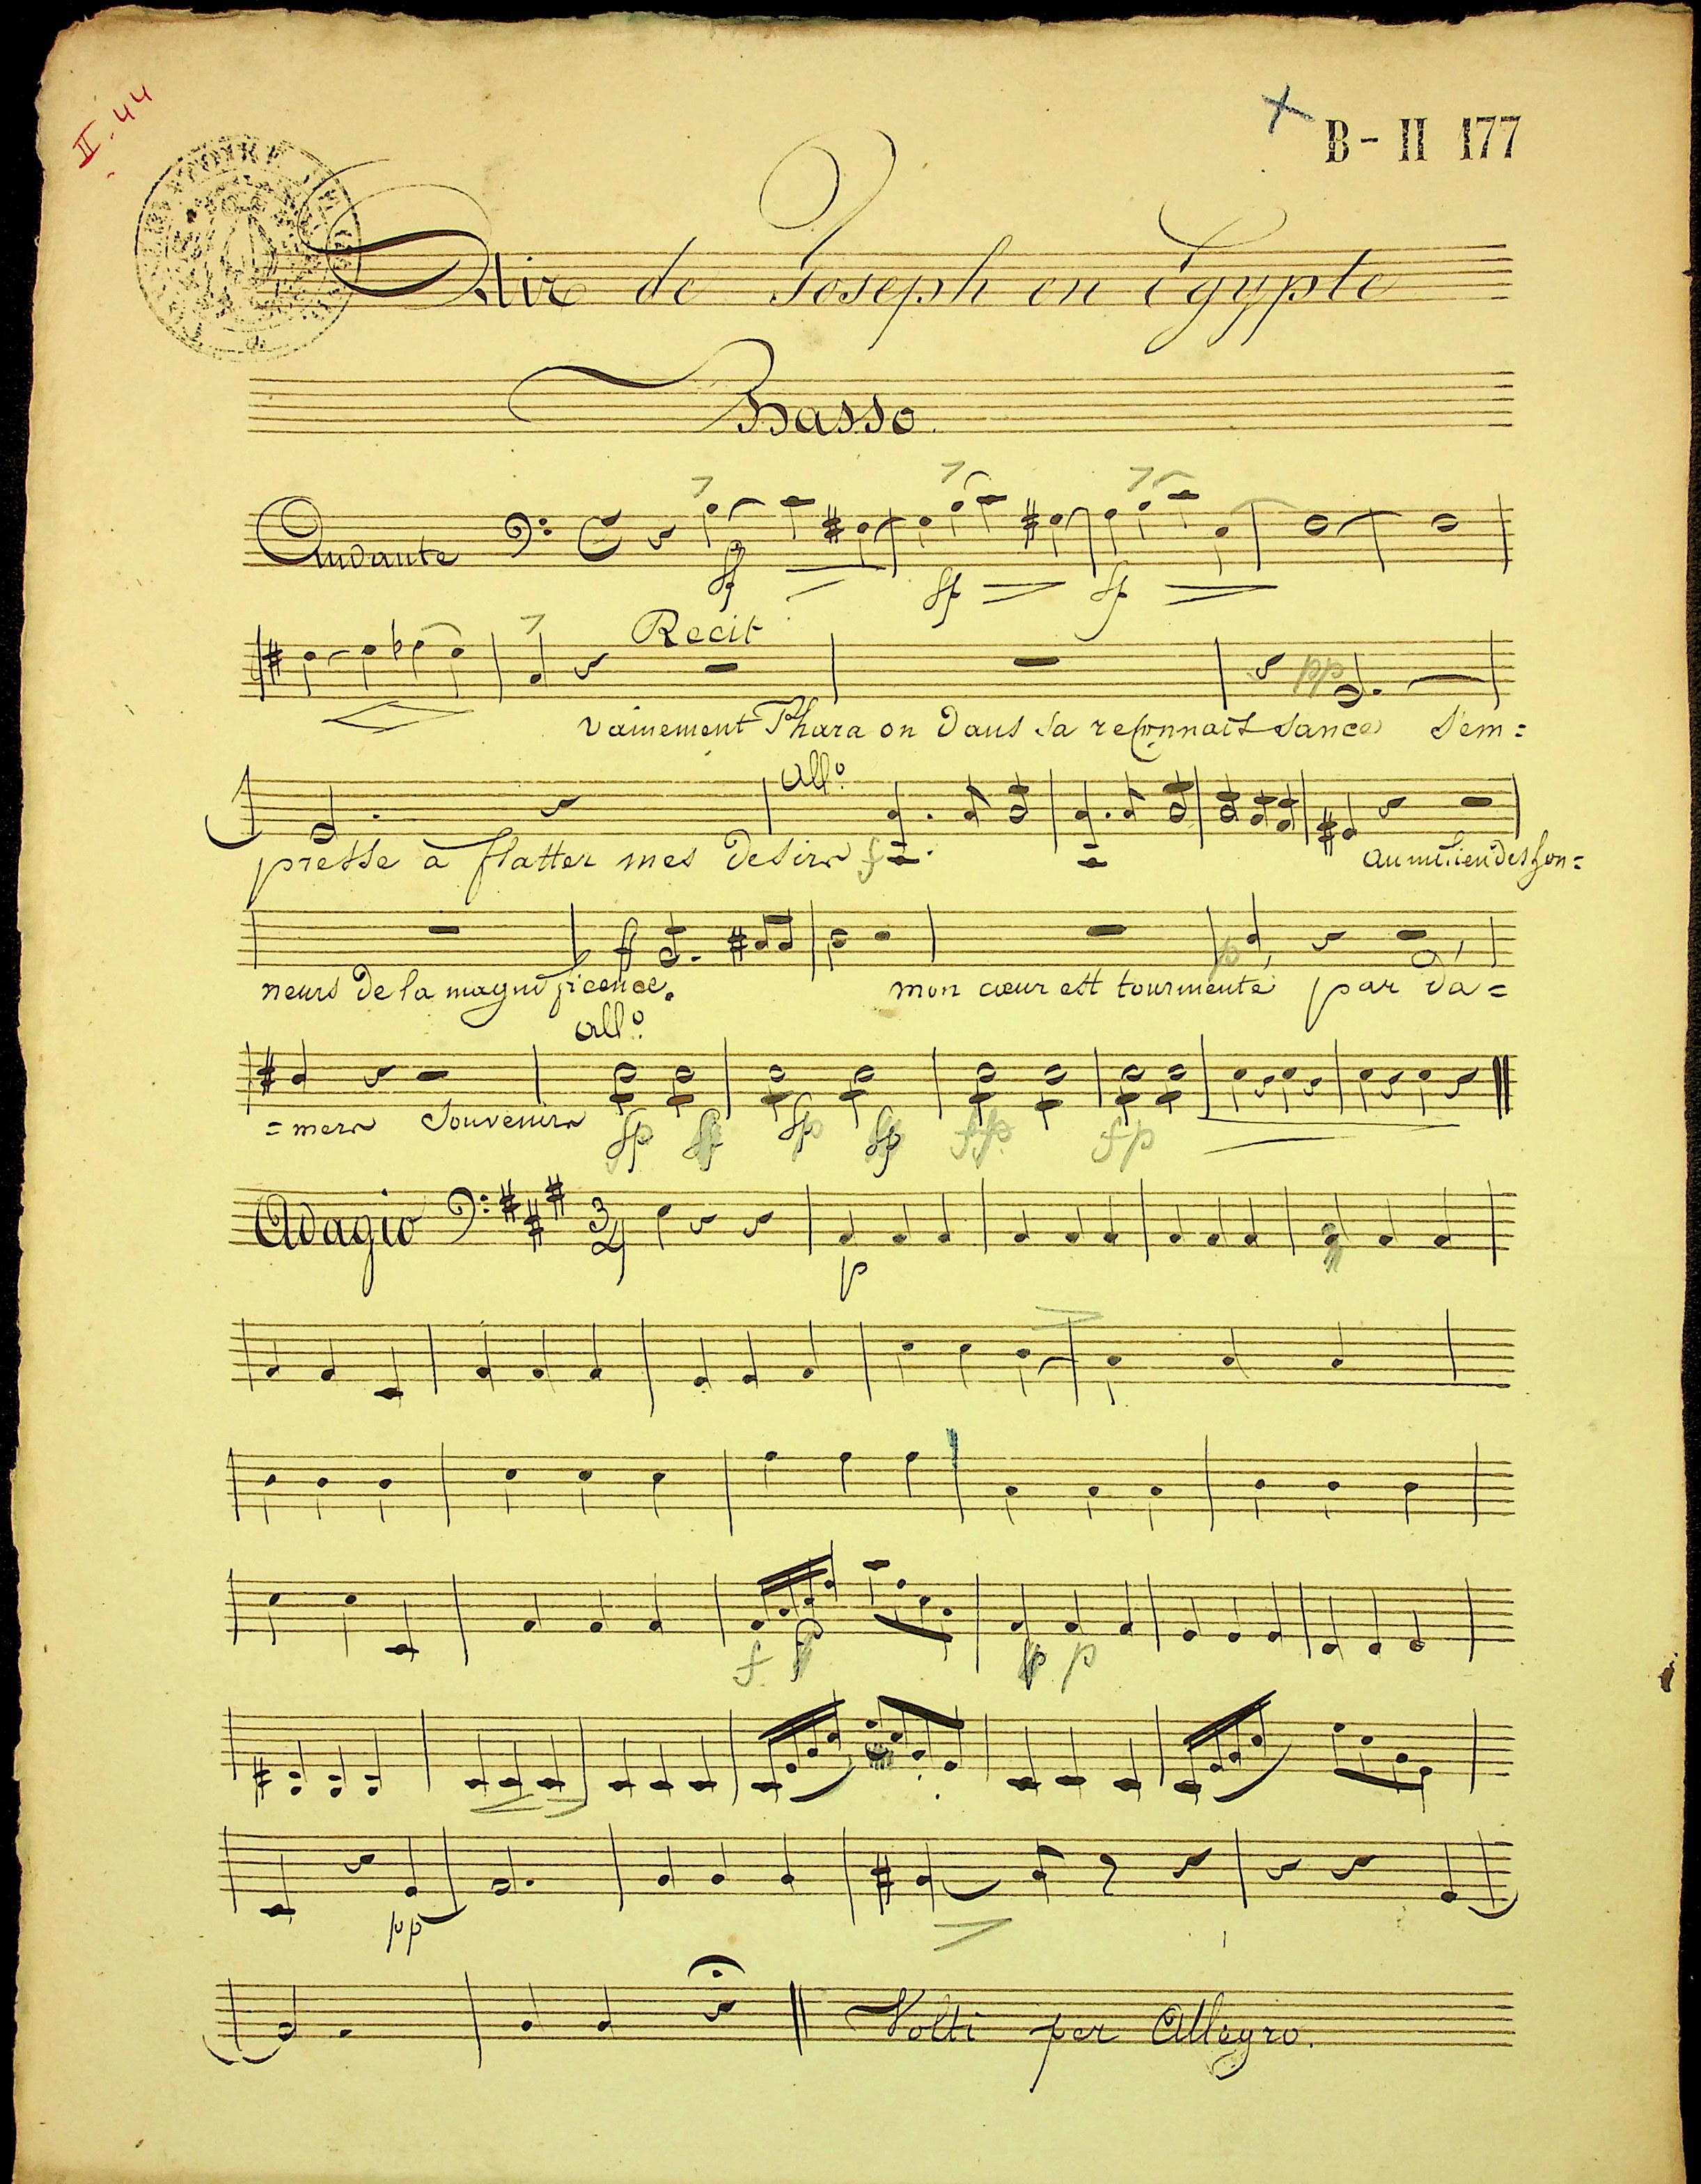 II. 44
B - II 177
Air de Joseph en Egypte
Basso.
Andante
ff fp fp
Recit
pp
vainement Phara on dans sa reconnais sance s'em=
all°.
presse a flatter mes desirs f au milieu des hon=
f p
neurs de la magnificence. mon cœur est tourmenté par d'a=
all°.
=mers Souvenirs
fp fp fp fp fp
Adagio 3/4
p
f p
pp
Volti per Allegro.